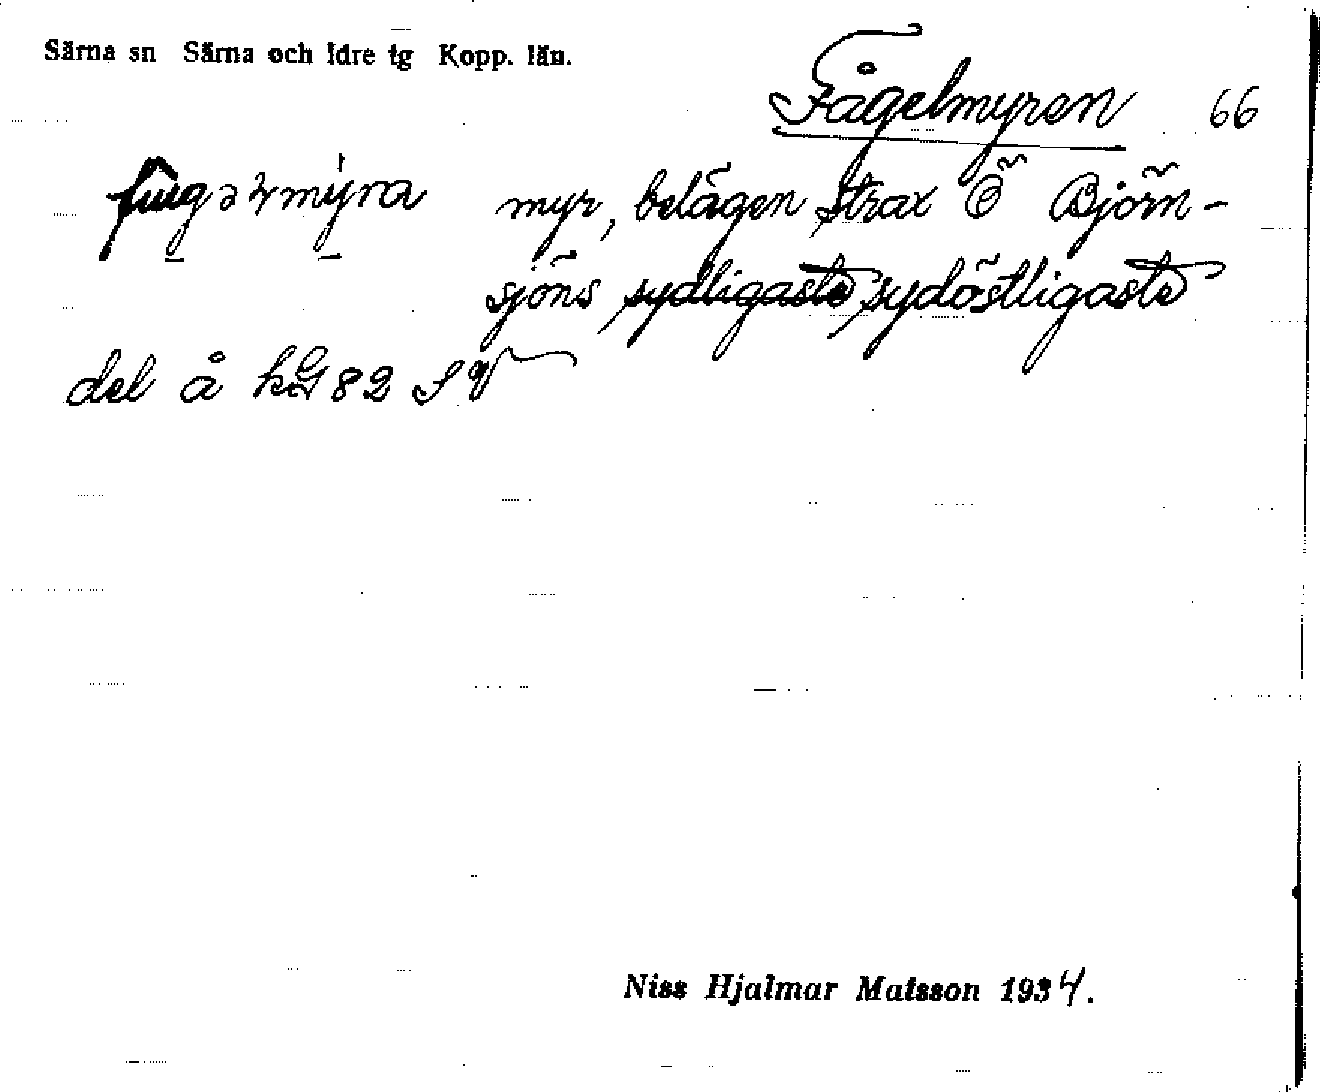 Särna sn Särna och Idre tg Kopp. län.
Fågelmyren 66
myr, belägen strax Ö Björn-
sjöns sydligaste sydöstligaste
del å kG 82 SV
Niss Hjalmar Matsson 1934.